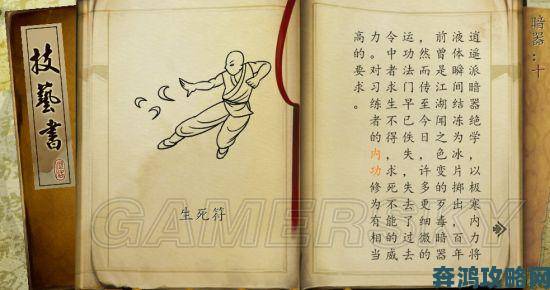 技藝書
生死符
暗器：十
逍遥派暗器绝学，以极寒内力将
液体瞬间结冻为冰片掷出，百年
前曾是江湖闻之色变的歹毒暗器
，然而传至今日，许多更细微的
运功法门早已佚失，失去了过去
令中者求生不得，求死不能的威
力。对习练者的内功修为有相当
高的要求。
GAMERSKY
奔鸿攻略网